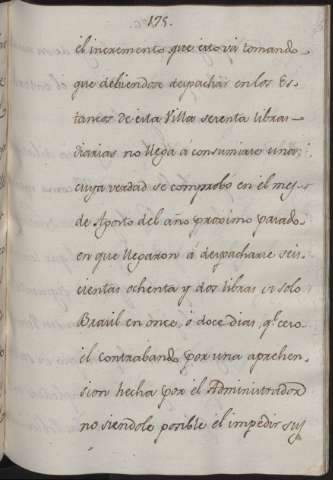 175.
el incremento que esto vá tomando
que debiendose despachar en los Es-
tancos de esta Villa setenta libras
diarias no llega á consumirse una;
cuya verdad se comprobo en el mes
de Agosto del año proximo pasado
en que llegaron á despacharse seis-
cientas ochenta y dos libras de solo
Brasil en once, ó doce dias, q.e cesó
el contrabando por una aprehen-
sion hecha por el Administrador
no siendole posible el impedir sus